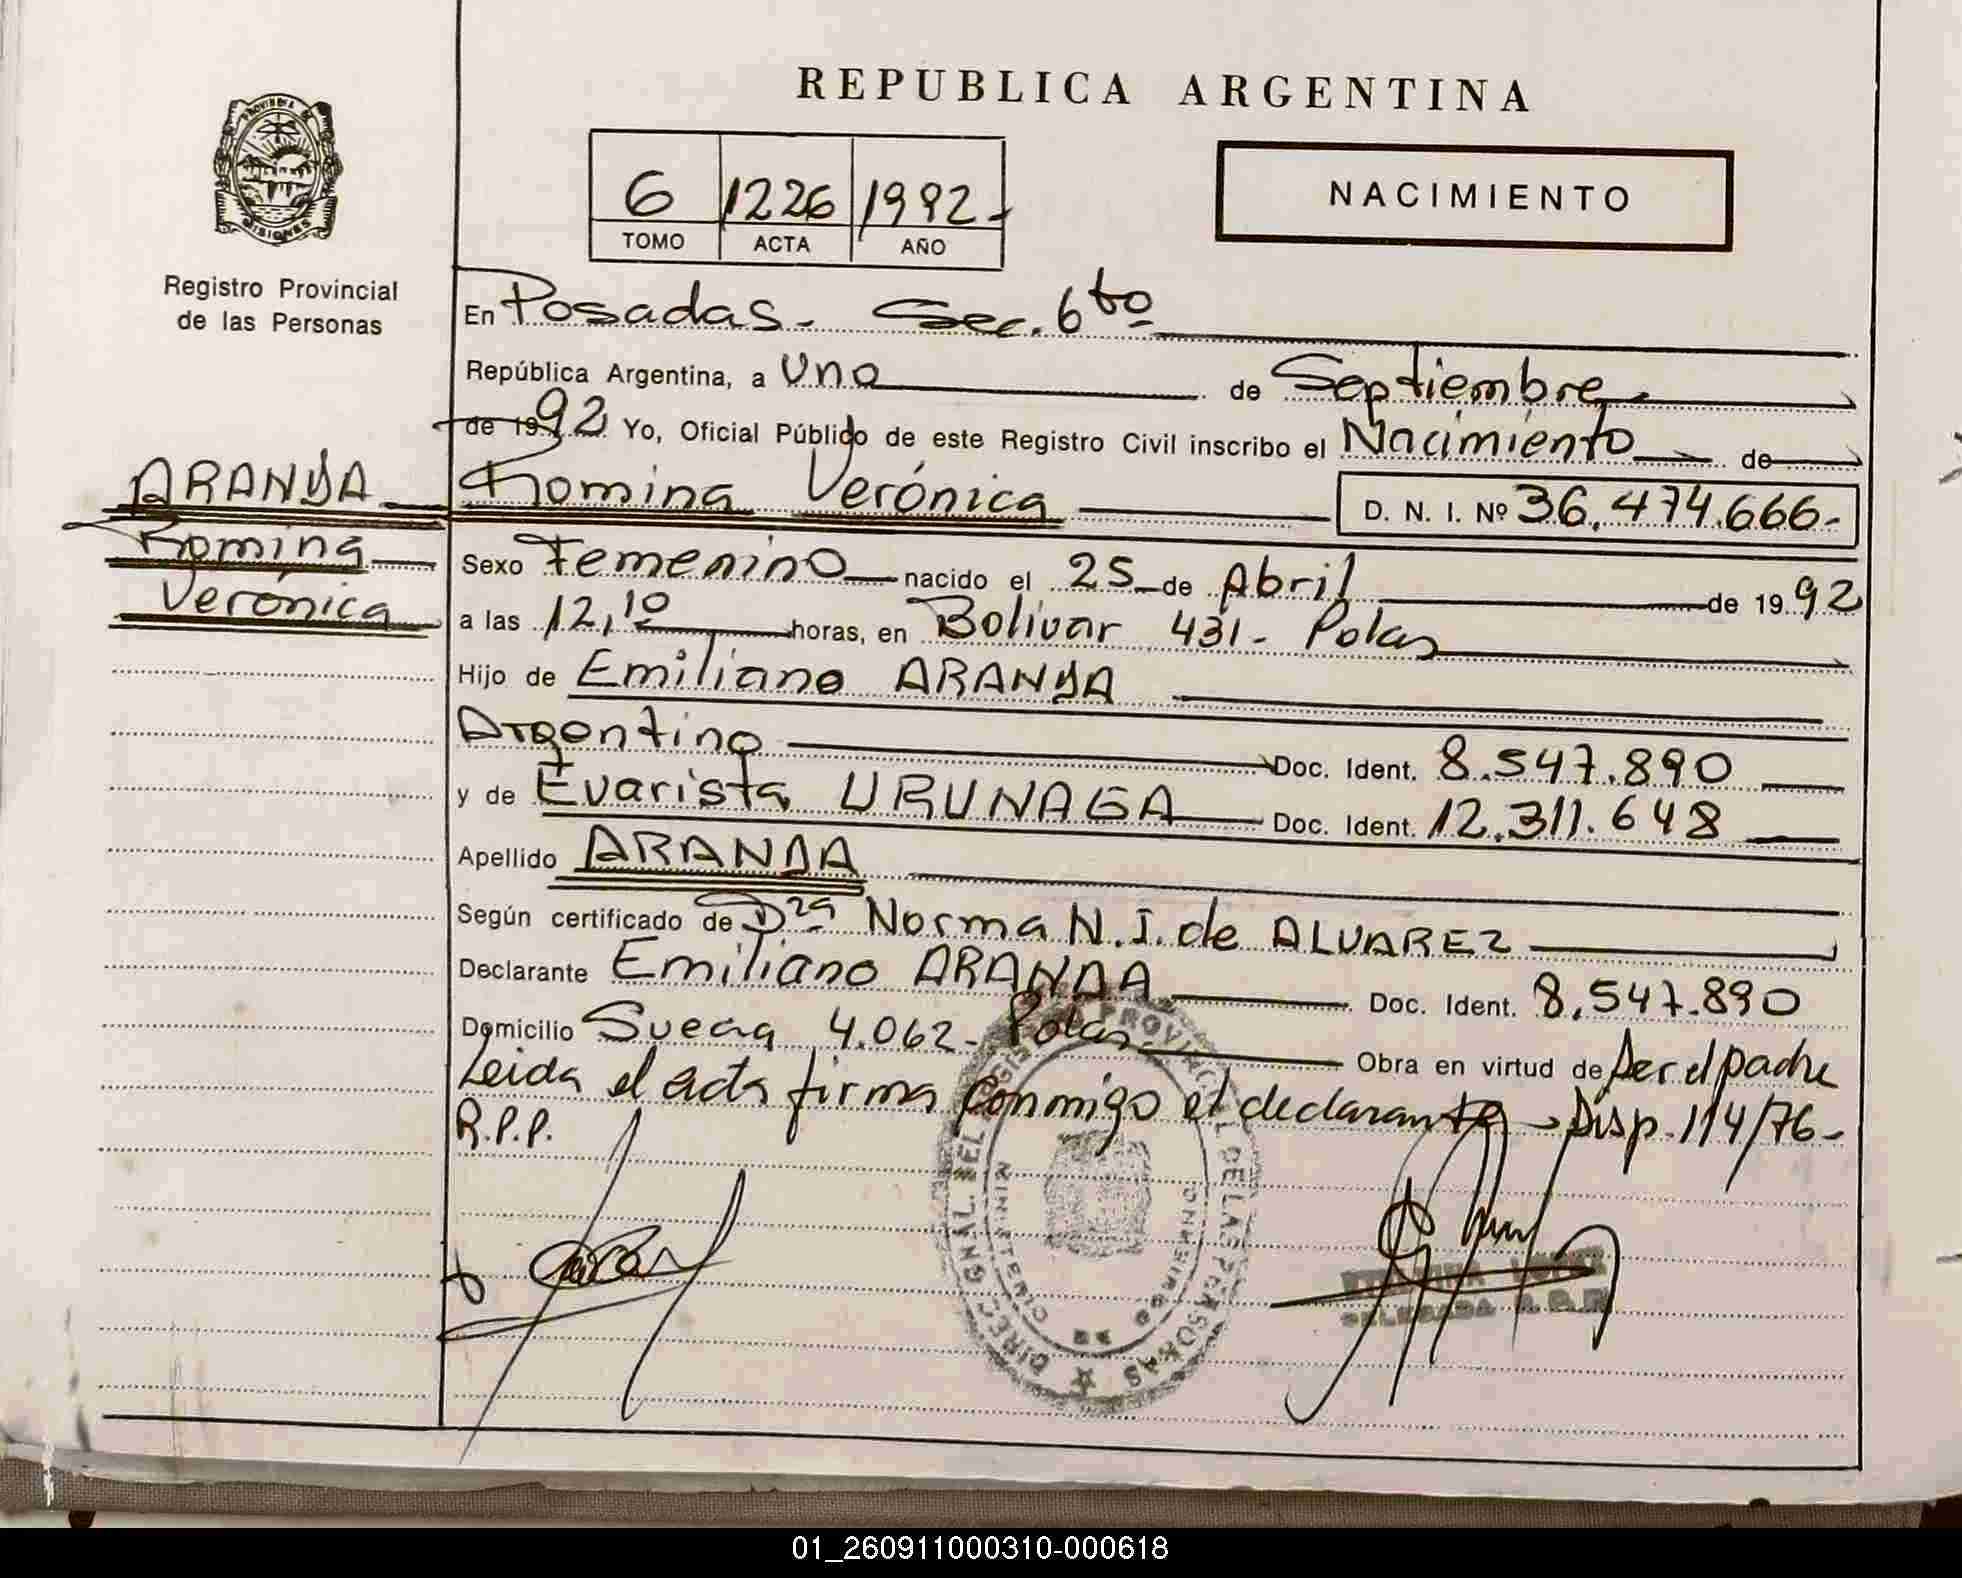 REPUBLICA ARGENTINA
PROVINCIA DE
MISIONES
Registro Provincial
de las Personas
6 1226 1992
TOMO ACTA AÑO
NACIMIENTO
En Posadas - Sec. 6to
República Argentina, a Uno de Septiembre
de 1992 Yo, Oficial Público de este Registro Civil inscribo el Nacimiento de
ARANDA
Romina
Verónica
Romina Verónica D. N. I. Nº 36.474.666.-
Sexo Femenino nacido el 25 de Abril de 1992
a las 12,10 horas, en Bolívar 431 - Pdas
Hijo de Emiliano ARANDA
Argentino Doc. Ident. 8.547.890
y de Evarista URUNAGA Doc. Ident. 12.311.648
Apellido ARANDA
Según certificado de Dra Norma N. J. de ALVAREZ
Declarante Emiliano ARANDA Doc. Ident. 8.547.890
Domicilio Suecia 4.062 - Pdas Obra en virtud de ser el padre
Leida el acta firma conmigo el declarante - Disp. 114/76 -
R.P.P.
DIREC. GRAL. DEL REGISTRO PROVINCIAL DE LAS PERSONAS
MINISTERIO DE GOBIERNO
DELEGADA R.P.P.
01_260911000310-000618